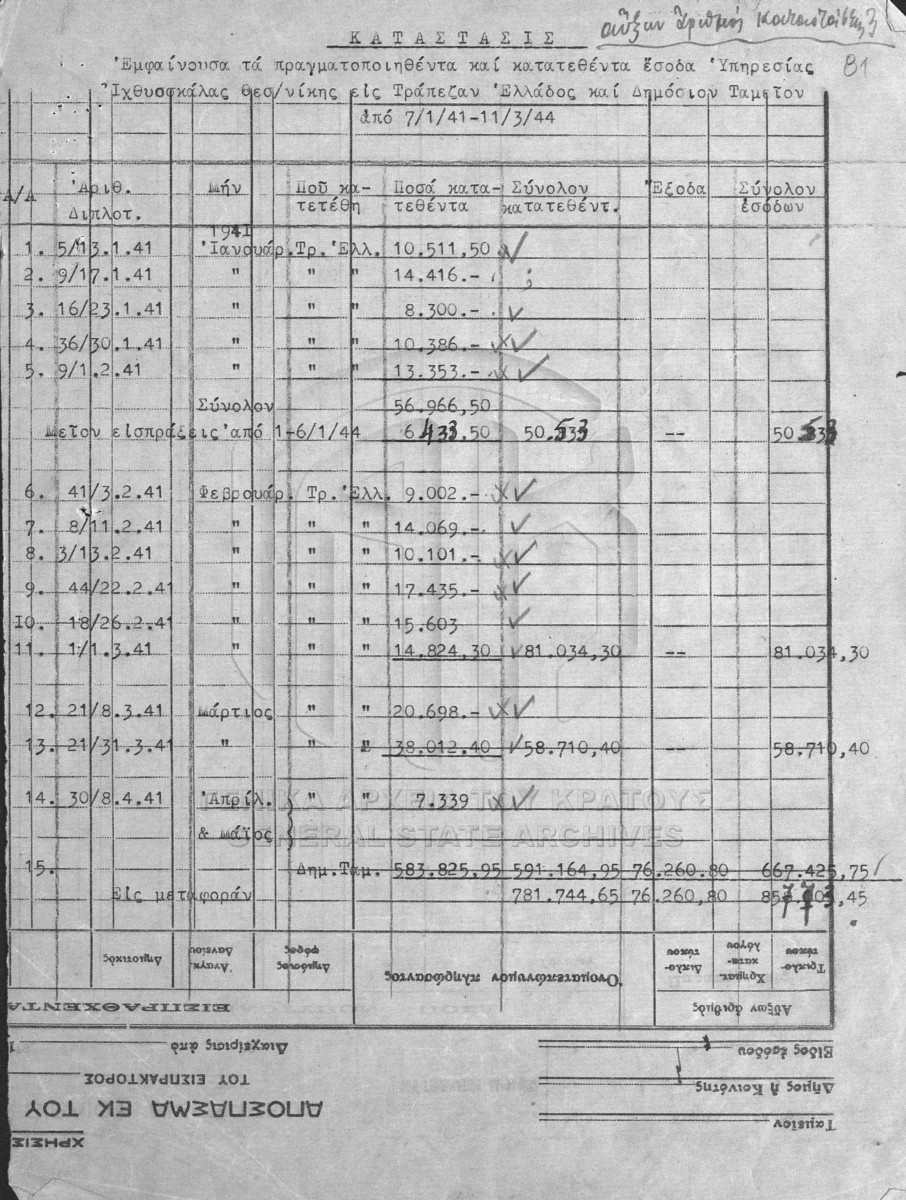 αὔξων ἀριθμός καταστάσεως 3
ΚΑΤΑΣΤΑΣΙΣ
81
Ἐμφαίνουσα τά πραγματοποιηθέντα καί κατατεθέντα ἔσοδα Ὑπηρεσίας
Ἰχθυοσκάλας Θεσ/νίκης είς Τράπεζαν Ἑλλάδος καί Δημόσιον Ταμεῖον
ἀπό 7/1/41-11/3/44
Α/Α Ἀριθ. Διπλοτ. Μήν Ποῦ κατετέθη Ποσά κατατεθέντα Σύνολον κατατεθέντ. Ἔξοδα Σύνολον ἐσόδων
1941
1. 5/13.1.41 Ἰανουάρ. Τρ. Ἑλλ. 10.511,50
2. 9/17.1.41 " " " 14.416.-
3. 16/23.1.41 " " " 8.300.-
4. 36/30.1.41 " " " 10.386.-
5. 9/1.2.41 " " " 13.353.-
Σύνολον 56.966,50
Μεῖον εἰσπράξεις ἀπό 1-6/1/44 6.433,50 50.533 -- 50.533
6. 41/3.2.41 Φεβρουάρ. Τρ. Ἑλλ. 9.002.-
7. 8/11.2.41 " " " 14.069.-
8. 3/13.2.41 " " " 10.101.-
9. 44/22.2.41 " " " 17.435.-
10. 18/26.2.41 " " " 15.603
11. 1/1.3.41 " " " 14.824,30 81.034,30 -- 81.034,30
12. 21/8.3.41 Μάρτιος " " 20.698.-
13. 21/31.3.41 " " " 38.012.40 58.710,40 -- 58.710,40
14. 30/8.4.41 Ἀπρίλ. " " 7.339
ΓΕΝΙΚΑ ΑΡΧΕΙΑ ΤΟΥ ΚΡΑΤΟΥΣ
& μάϊος
GENERAL STATE ARCHIVES
15. Δημ.Ταμ. 583.825,95 591.164,95 76.260.80 667.425,75
Εἰς μεταφοράν 781.744,65 76.260,80
Δημοτικός Ἀναγκ. Δανείου Δημόσιος φόρος Ὀνοματεπώνυμον πληρώσαντος Διπλοτύπου Χρηματ. καταλόγου Τριπλοτύπου
ΕΙΣΠΡΑΧΘΕΝΤΑ
Αὔξων ἀριθμός
Διαχείρισις ἀπό
Εἶδος ἐσόδου
ΤΟΥ ΕΙΣΠΡΑΚΤΟΡΟΣ
Δῆμος ἤ Κοινότης
ΑΠΟΣΠΑΣΜΑ ΕΚ ΤΟΥ
Ταμεῖον
ΧΡΗΣΙΣ